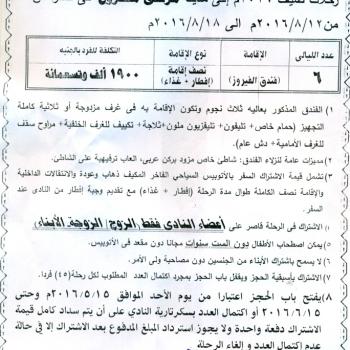 من ٢٠١٦/٨/١٢م الى ٢٠١٦/٨/١٨م
عدد الليالي
الإقامة
نوع الإقامة
التكلفة للفرد بالجنيه
٦
(فندق الفيروز)
نصف إقامة
(إفطار + غذاء)
١٩٠٠ ألف وتسعمائة
١) الفندق المذكور بعاليه ثلاث نجوم وتكون الإقامة به فى غرف مزدوجة أو ثلاثية كاملة
التجهيز (حمام خاص + تليفون + تليفزيون ملون + ثلاجة + تكييف للغرف الخلفية + مراوح سقف
للغرف الأمامية + دش عام).
٢) مميزات عامة لنزلاء الفندق: شاطئ خاص مزود بركن عربى، العاب ترفيهية على الشاطئ.
٣) تشمل قيمة الاشتراك السفر بالأتوبيس السياحي الفاخر المكيف ذهاب وعودة والانتقالات الداخلية
والإقامة نصف الكاملة طوال مدة الرحلة (إفطار + غذاء) مع تقديم وجبة إفطار من النادى عند
السفر.
٤) الاشتراك فى الرحلة قاصر على أعضاء النادى فقط (الزوج/ الزوجة/ الأبناء)
٥) يمكن اصطحاب الأطفال دون الست سنوات مجانا دون مقعد فى الأتوبيس.
٦) لا يسمح باشتراك أي من الجنسين دون مصاحبة ولى الأمر.
٧) الاشتراك بأسبقية الحجز ويقفل باب الحجز بمجرد اكتمال العدد المطلوب لكل رحلة (٤٥) فردا.
٨) يفتح باب الحجز اعتبارا من يوم الأحد الموافق ٢٠١٦/٥/١٥م وحتى
٢٠١٦/٦/١٥م أو اكتمال العدد بسكرتارية النادى على أن يتم سداد كامل قيمة
الاشتراك دفعة واحدة ولا يجوز استرداد المبلغ المدفوع بعد الاشتراك إلا فى حالة
عدم اكتمال العدد و إلغاء الرحلة